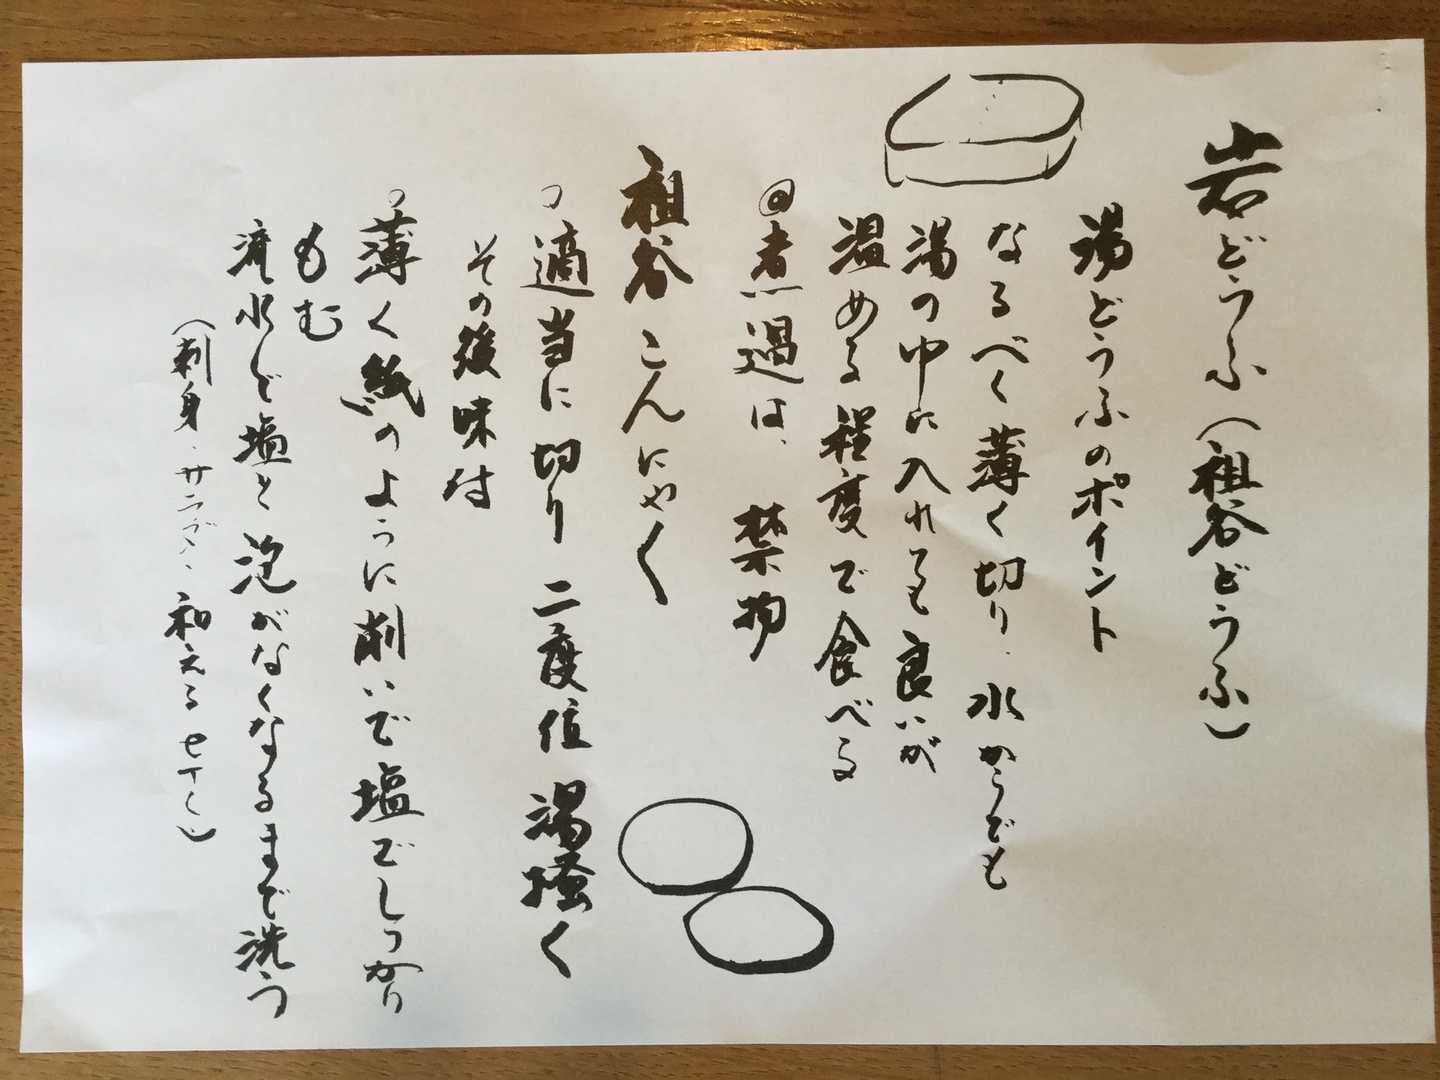 岩どうふ（祖谷どうふ）
湯どうふのポイント
なるべく薄く切り、水からでも
湯の中に入れても良いが
温める程度で食べる
◎煮過は、禁物
祖谷こんにゃく
○適当に切り二度位湯掻く
その後味付
○薄く紙のように削いで塩でしっかり
もむ
流水で塩と泡がなくなるまで洗う
（刺身、サラダ、和える